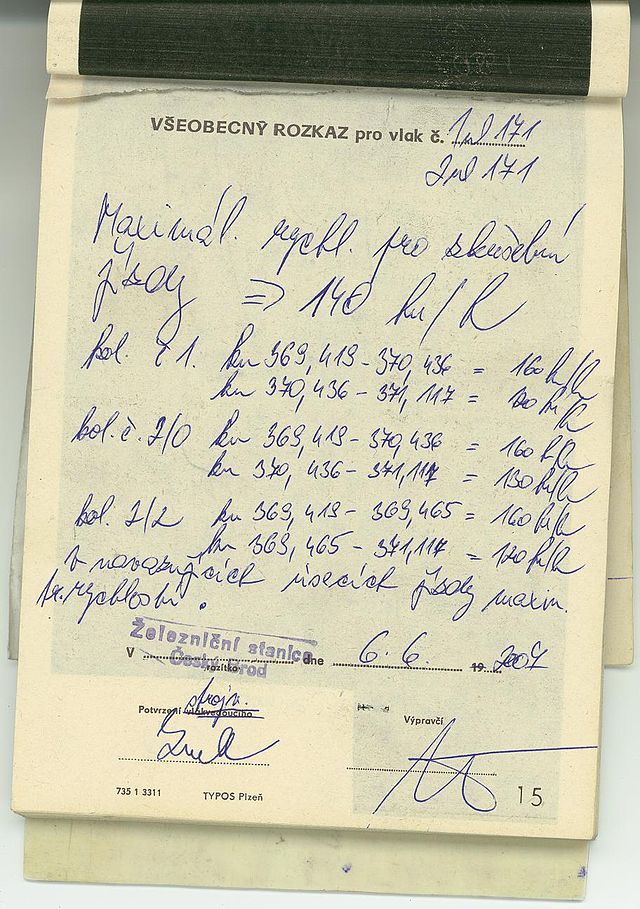 VŠEOBECNÝ ROZKAZ pro vlak č. 1nd 171
2nd 171
Maximál. rychl. pro zkušební
jízdy => 140 km/h
kol. č 1. km 369,419 - 370,436 = 160 km/h
km 370,436 - 371,117 = 120 km/h
kol. č. 2/0 km 369,419 - 370,436 = 160 km/h
km 370,436 - 371,117 = 130 km/h
kol. 2/2 km 369,419 - 369,465 = 160 km/h
km 369,465 - 371,117 = 120 km/h
v navazujících úsecích jízdy maxim.
tr. rychlostí.
Železniční stanice
Český Brod
V dne 6. 6. 19 2007
razítko
strojv.
Potvrzení vlakvedoucího
Výpravčí
15
735 1 3311 TYPOS Plzeň